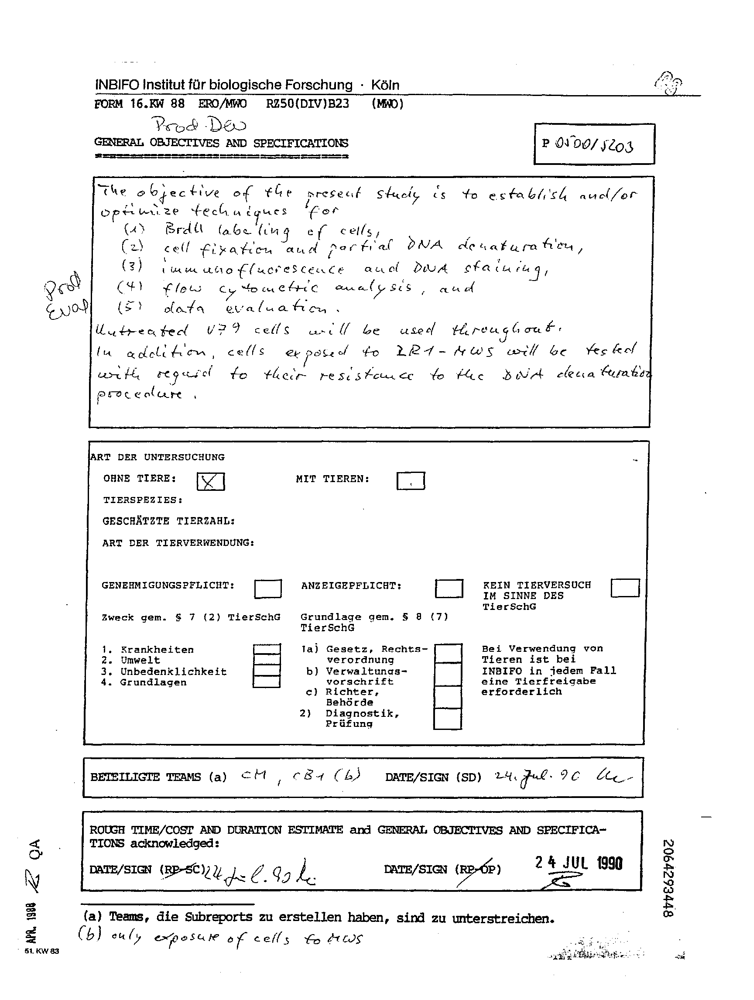 INBIFO Institut für biologische Forschung · Köln
FORM 16.KW 88 ERO/MWO RZ50(DIV)B23 (MWO)
Prod. Dev
GENERAL OBJECTIVES AND SPECIFICATIONS
P 0500/5203
The objective of the present study is to establish and/or
optimize techniques for
(1) BrdU labeling of cells,
(2) cell fixation and partial DNA denaturation,
(3) immunofluorescence and DNA staining,
Prod
(4) flow cytometric analysis, and
Eval
(5) data evaluation.
Untreated V79 cells will be used throughout.
In addition, cells exposed to 2R1-MWS will be tested
with regard to their resistance to the DNA denaturation
procedure.
ART DER UNTERSUCHUNG
OHNE TIERE: X MIT TIEREN:
TIERSPEZIES:
GESCHÄTZTE TIERZAHL:
ART DER TIERVERWENDUNG:
GENEHMIGUNGSPFLICHT: ANZEIGEPFLICHT: KEIN TIERVERSUCH
IM SINNE DES
TierSchG
Zweck gem. § 7 (2) TierSchG Grundlage gem. § 8 (7)
TierSchG
1. Krankheiten 1a) Gesetz, Rechts- Bei Verwendung von
2. Umwelt verordnung Tieren ist bei
3. Unbedenklichkeit b) Verwaltungs- INBIFO in jedem Fall
4. Grundlagen vorschrift eine Tierfreigabe
c) Richter, erforderlich
Behörde
2) Diagnostik,
Prüfung
BETEILIGTE TEAMS (a) CM, CB1 (b) DATE/SIGN (SD) 24. Jul. 90
ROUGH TIME/COST AND DURATION ESTIMATE and GENERAL OBJECTIVES AND SPECIFICA-
TIONS acknowledged:
DATE/SIGN (RP-SC) 24 Jul. 90 DATE/SIGN (RP-OP) 24 JUL 1990
(a) Teams, die Subreports zu erstellen haben, sind zu unterstreichen.
(b) only exposure of cells to MWS
APR. 1988 QA
51. KW 83
2064293448